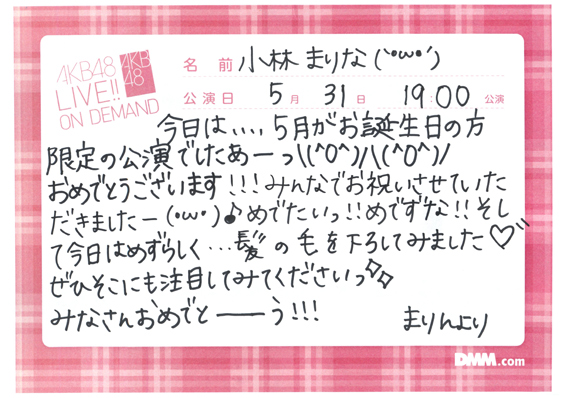 AKB48
LIVE!!
ON DEMAND
AKB
48
名 前 小林 まりな(`•ω•´)
公演日 5月 31日 19:00 公演
今日は、、、、5月がお誕生日の方
限定の公演でしたあーっ\(^O^)/\(^O^)/
おめでとうございます!!!みんなでお祝いさせていた
だきましたー(•ω•)♪めでたいっ!!めでずな!!そし
て今日はめずらしく...髪の毛を下ろしてみました♡
ぜひそこにも注目してみてくださいっ
みなさんおめでとーーう!!!
まりんより
DMM.com